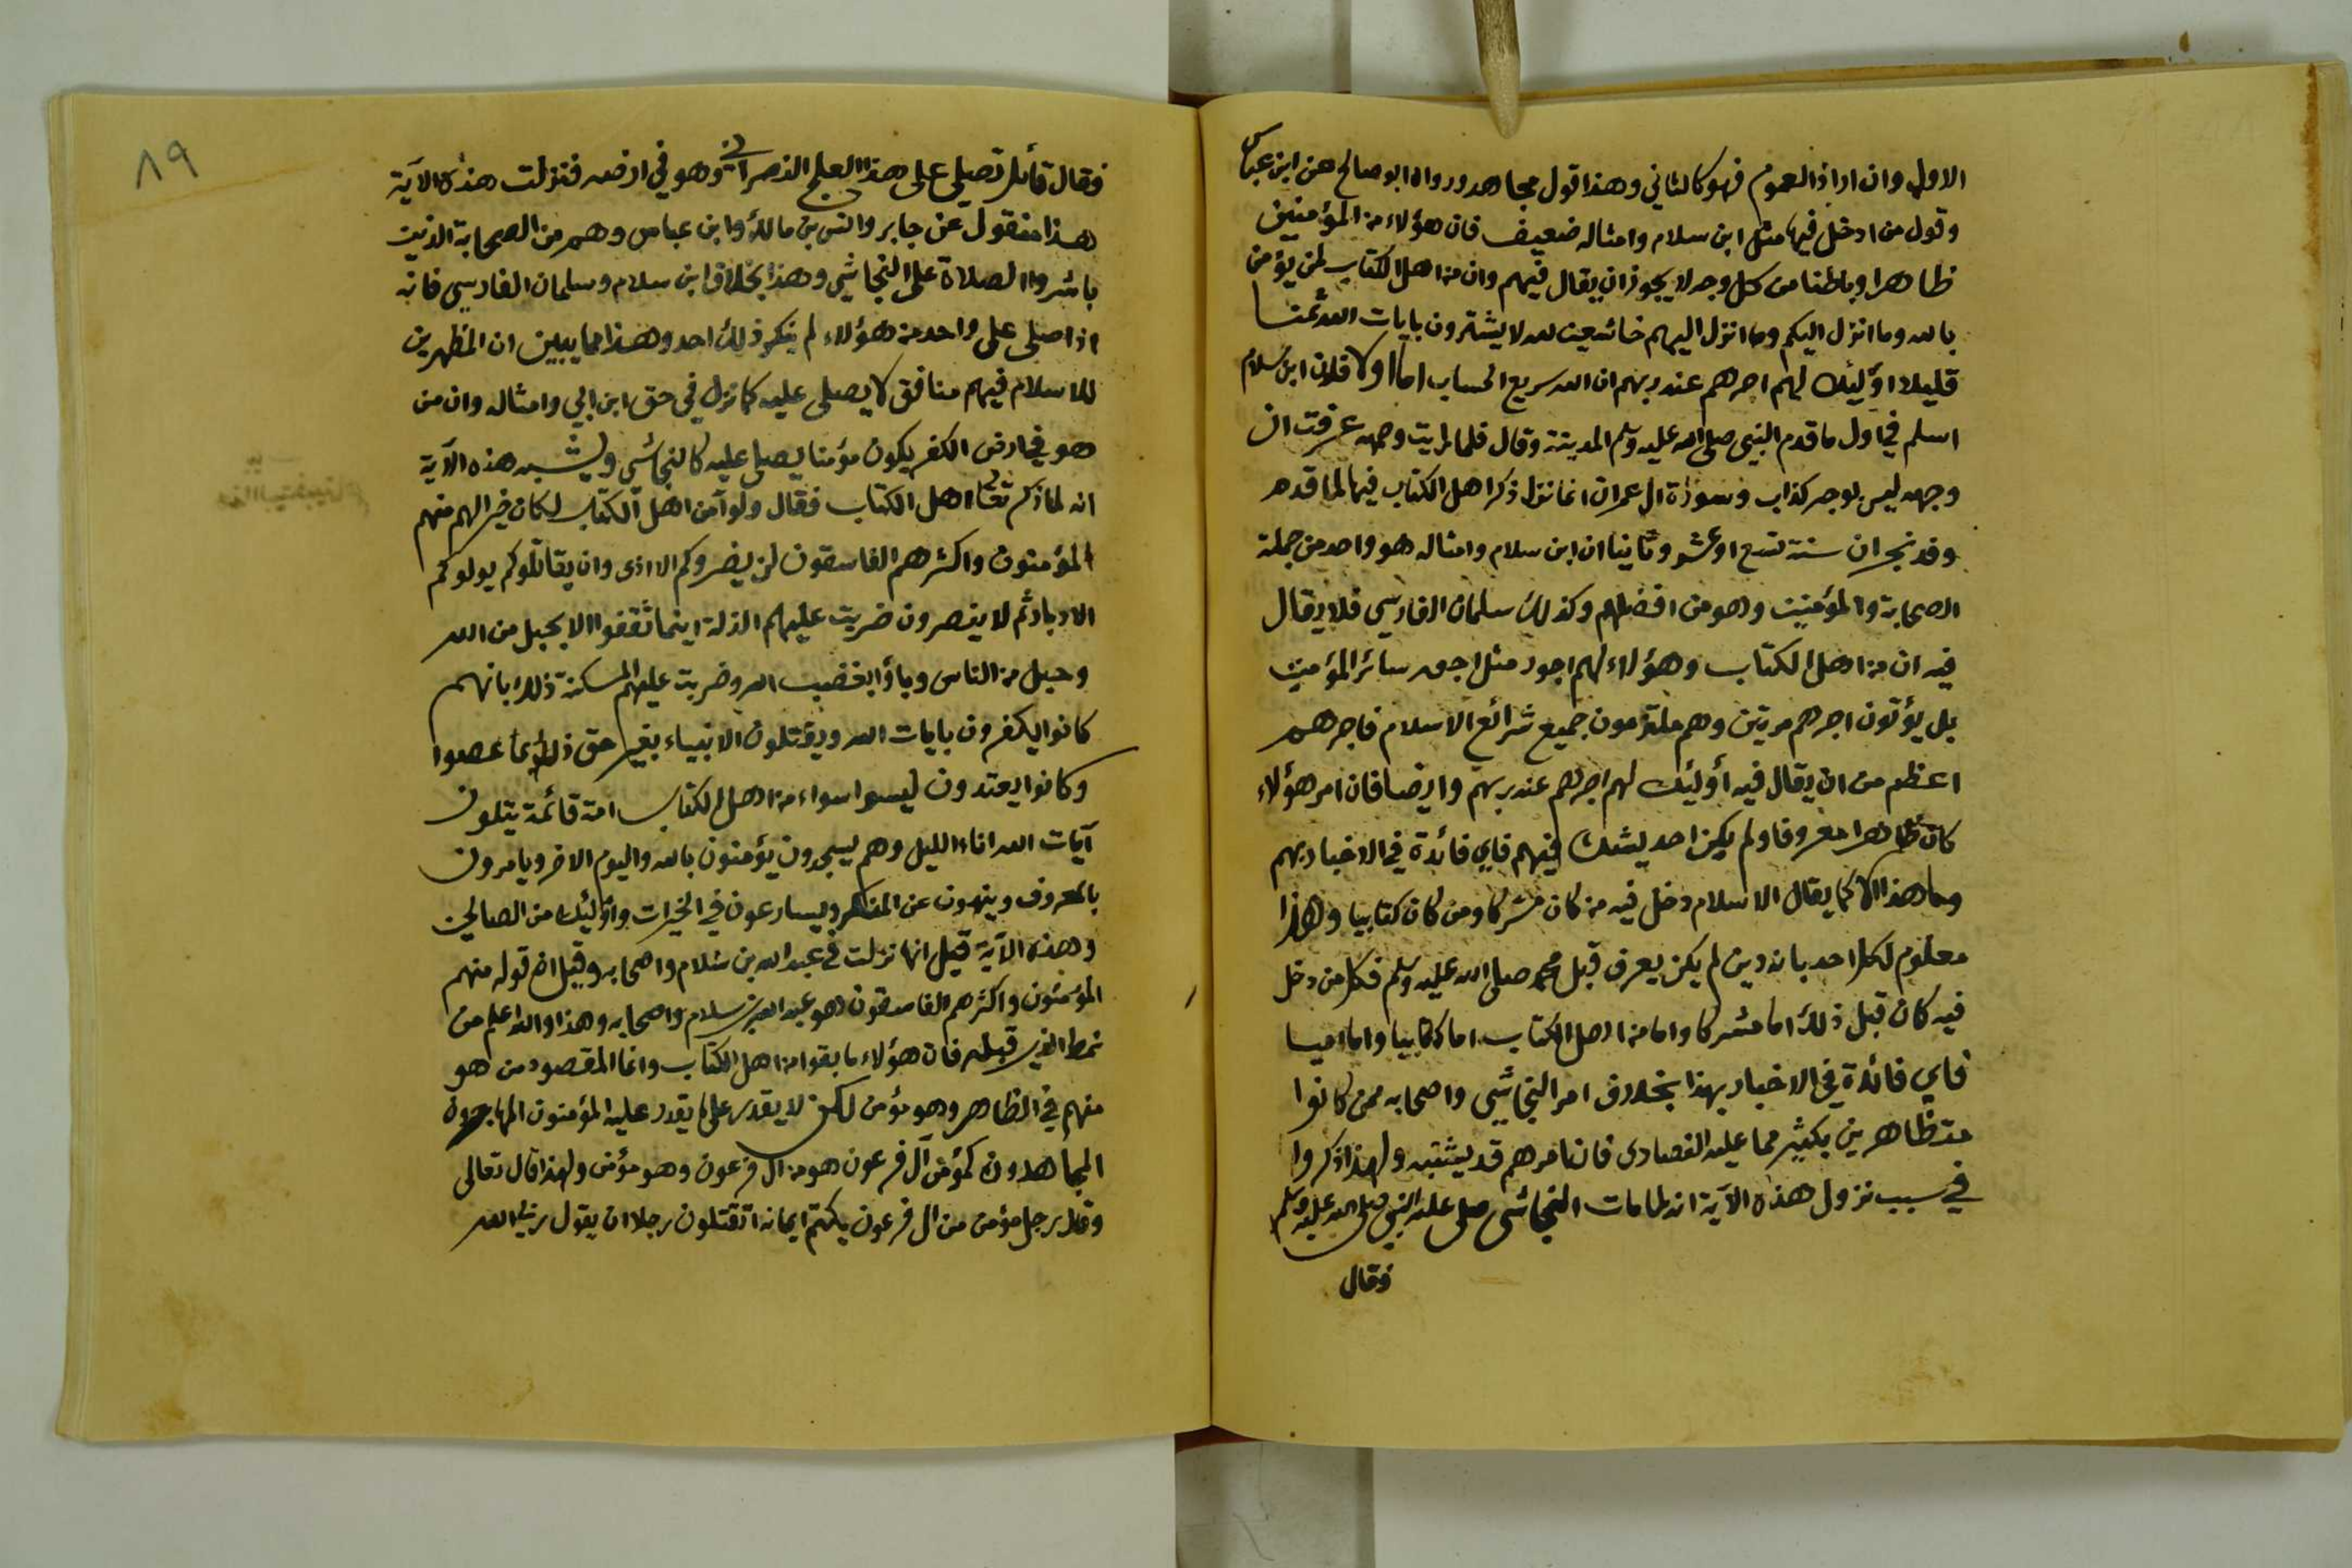 الاول وان اراد العموم فهو كالثاني وهذا قول مجاهد ورواه ابو صالح عن ابن عباس
وقول من ادخل فيها مثل ابن سلام وامثاله ضعيف فان هؤلاء من المؤمنين
ظاهرا وباطنا من كل وجه لا يجوز ان يقال فيهم وان من اهل الكتاب لمن يؤمن
بالله وما انزل اليكم وما انزل اليهم خاشعين لله لا يشترون بايات الله ثمنا
قليلا اولئك لهم اجرهم عند ربهم ان الله سريع الحساب اما اولا فلان ابن سلام
اسلم في اول ما قدم النبي صلى الله عليه وسلم المدينة وقال فلما رايت وجهه عرفت ان
وجهه ليس بوجه كذاب وسورة ال عمران انما نزل ذكر اهل الكتاب فيها لما قدم
وفد نجران سنة تسع او عشر وثانيا ان ابن سلام وامثاله هو واحد من جملة
الصحابة والمؤمنين وهو من افضلهم وكذلك سلمان الفارسي فلا يقال
فيه ان من اهل الكتاب وهؤلاء لهم اجور مثل اجور سائر المؤمنين
بل يؤتون اجرهم مرتين وهم ملتزمون جميع شرائع الاسلام فاجرهم
اعظم من ان يقال فيه أولئك لهم اجرهم عند ربهم وايضا فان امر هؤلاء
كان ظاهرا معروفا ولم يكن احد يشك فيهم فاي فائدة في الاخبار بهم
وما هذا الا كما يقال الاسلام دخل فيه من كان مشركا ومن كان كتابيا وهذا
معلوم لكل احد بانه دين لم يكن يعرف قبل محمد صلى الله عليه وسلم فكل من دخل
فيه كان قبل ذلك اما مشركا واما من اهل الكتاب اما كتابيا واما اميا
فاي فائدة في الاخبار بهذا بخلاف امر النجاشي واصحابه ممن كانوا
متظاهرين بكثير مما عليه النصارى فان امرهم قد يشتبه ولهذا ذكروا
في سبب نزول هذه الآية انه لما مات النجاشي صلى عليه النبي صلى الله عليه وسلم
فقال
٨٩
فقال قائل تصلي على هذا العلج النصراني وهو في ارضه فنزلت هذه الآية
هذا منقول عن جابر وانس بن مالك وابن عباس وهم من الصحابة الذين
باشروا الصلاة على النجاشي وهذا بخلاف ابن سلام وسلمان الفارسي فانه
اذا صلى على واحد من هؤلاء لم ينكر ذلك احد وهذا مما يبين ان المظهرين
للاسلام فيهم منافق لا يصلى عليه كما نزل في حق ابن ابي وامثاله وان من
هو في ارض الكفر يكون مؤمنا يصلى عليه كالنجاشي ويشبه هذه الآية
انه لما ذكر تعالى اهل الكتاب فقال ولو آمن اهل الكتاب لكان خيرا لهم منهم
المؤمنون واكثرهم الفاسقون لن يضروكم الا اذى وان يقاتلوكم يولوكم
الادبار ثم لا ينصرون ضربت عليهم الذلة اينما ثقفوا الا بحبل من الله
وحبل من الناس وباؤا بغضب الله وضربت عليهم المسكنة ذلك بانهم
كانوا يكفرون بايات الله ويقتلون الانبياء بغير حق ذلك بما عصوا
وكانوا يعتدون ليسوا سواء من اهل الكتاب امة قائمة يتلون
آيات الله اناء الليل وهم يسجدون يؤمنون بالله واليوم الاخر ويامرون
بالمعروف وينهون عن المنكر ويسارعون في الخيرات واولئك من الصالحين
وهذه الآية قيل انها نزلت في عبد الله بن سلام واصحابه وقيل ان قوله منهم
المؤمنون واكثرهم الفاسقون هو عبد الله بن سلام واصحابه وهذا والله اعلم من
نمط الذي قبله فان هؤلاء ما بقوا من اهل الكتاب وانما المقصود من هو
منهم في الظاهر وهو مؤمن لكن لا يقدر على ما يقدر عليه المؤمنون المهاجرون
المجاهدون كمؤمن آل فرعون هو من ال فرعون وهو مؤمن ولهذا قال تعالى
وقال رجل مؤمن من ال فرعون يكتم ايمانه اتقتلون رجلا ان يقول ربي الله